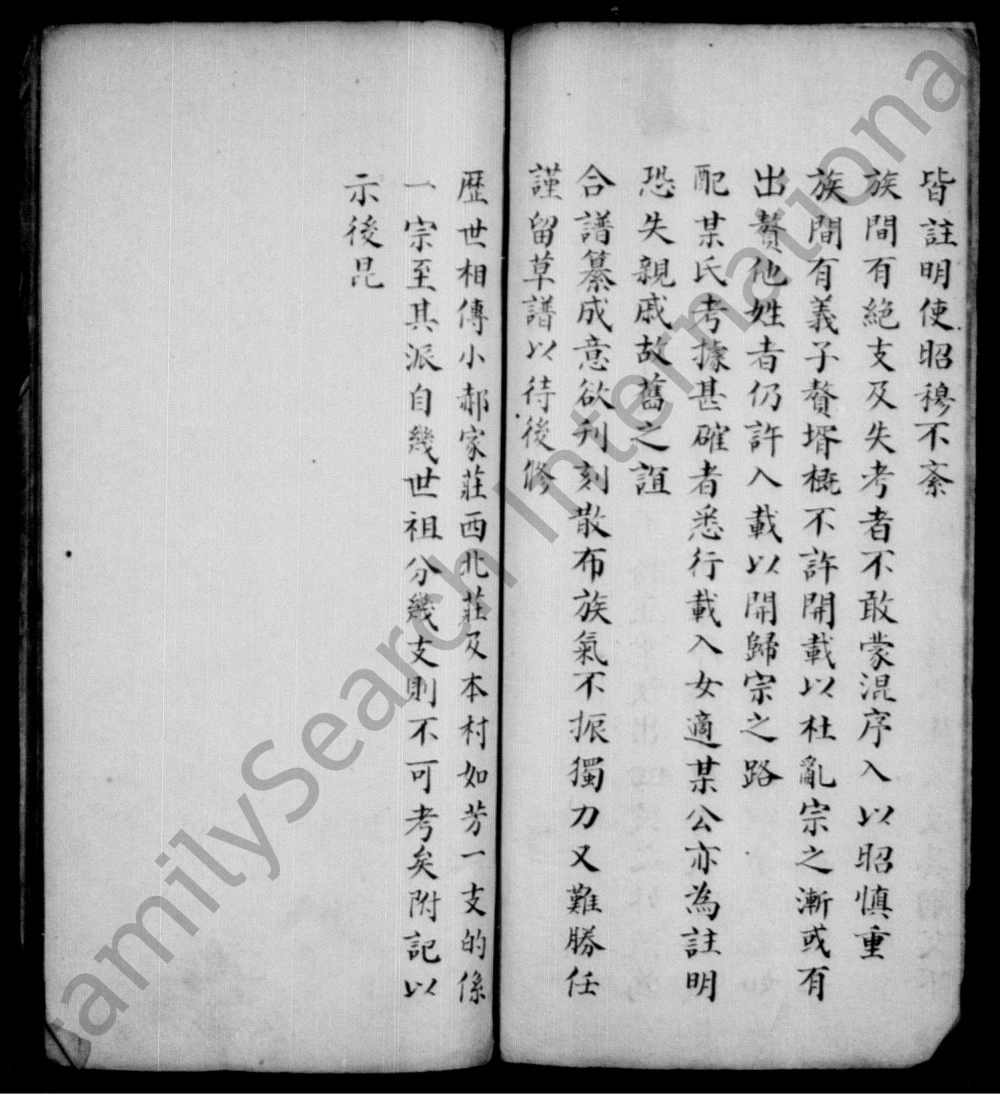 皆註明使昭穆不紊
族間有絕支及失考者不敢蒙混序入以昭慎重
族間有義子贅壻概不許開載以杜亂宗之漸或有
出贅他姓者仍許入載以開歸宗之路
配某氏考據甚確者悉行載入女適某公亦為註明
恐失親戚故舊之誼
合譜纂成意欲刋刻散布族氣不振獨力又難勝任
謹留草譜以待後修
歷世相傳小郝家莊西北莊及本村如芳一支的係
一宗至其派自幾世祖分幾支則不可考矣附記以
示後昆
FamilySearch International